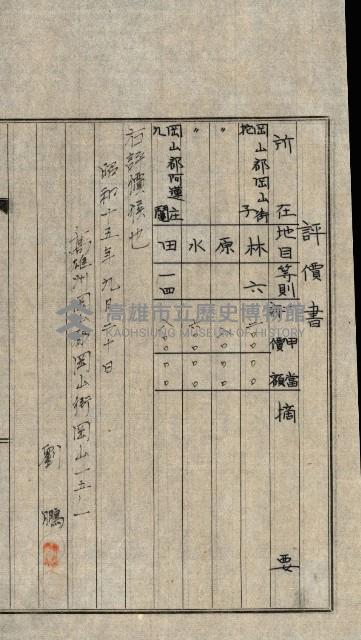 評價書
所在 地目 等則 甲當價額 摘要
岡山郡岡山街挖子 林 六
〃 原
〃 水
岡山郡阿蓮庄九關 田 一四
右評價候也
昭和十五年九月二十日
高雄州岡山郡岡山街岡山一五ノ一
劉鵬
高雄市立歷史博物館
KAOHSIUNG MUSEUM OF HISTORY